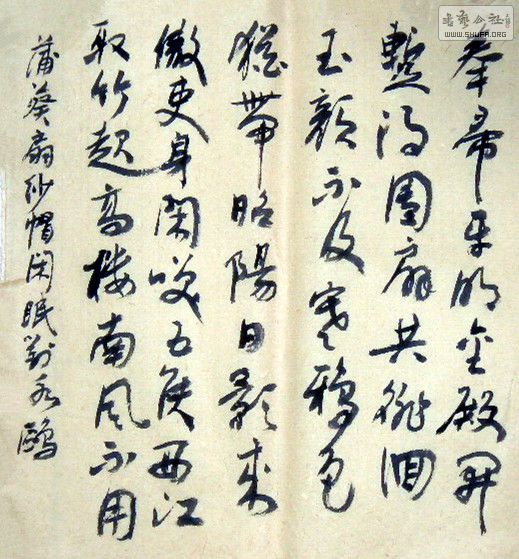 奉帚平明金殿開
暫得團扇共徘徊
玉顏不及寒鴉色
猶帶昭陽日影來
傲吏身閑笑五侯西江
取竹起高樓南風不用
蒲葵扇紗帽閑眠對水鷗
书艺公社
WWW.SHUFA.ORG